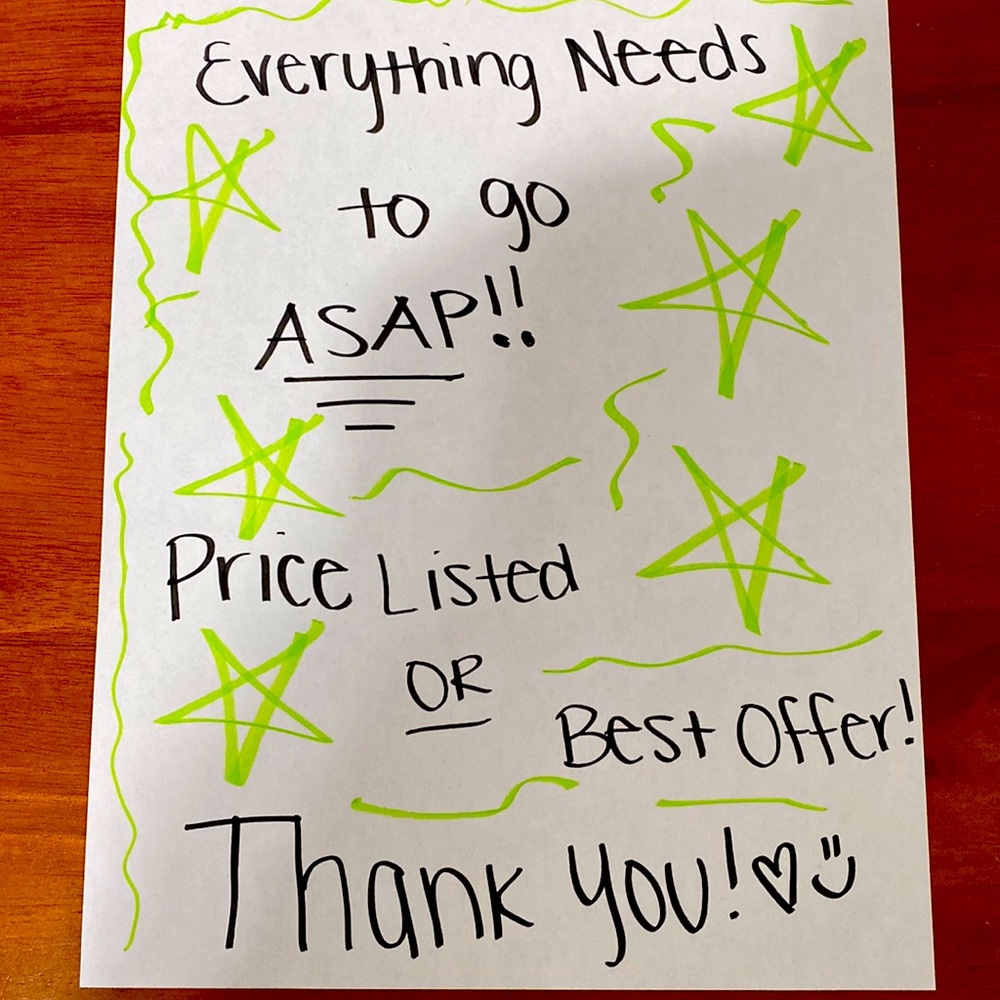 Everything Needs
to go
ASAP!!
Price Listed
OR
Best Offer!
Thank you!